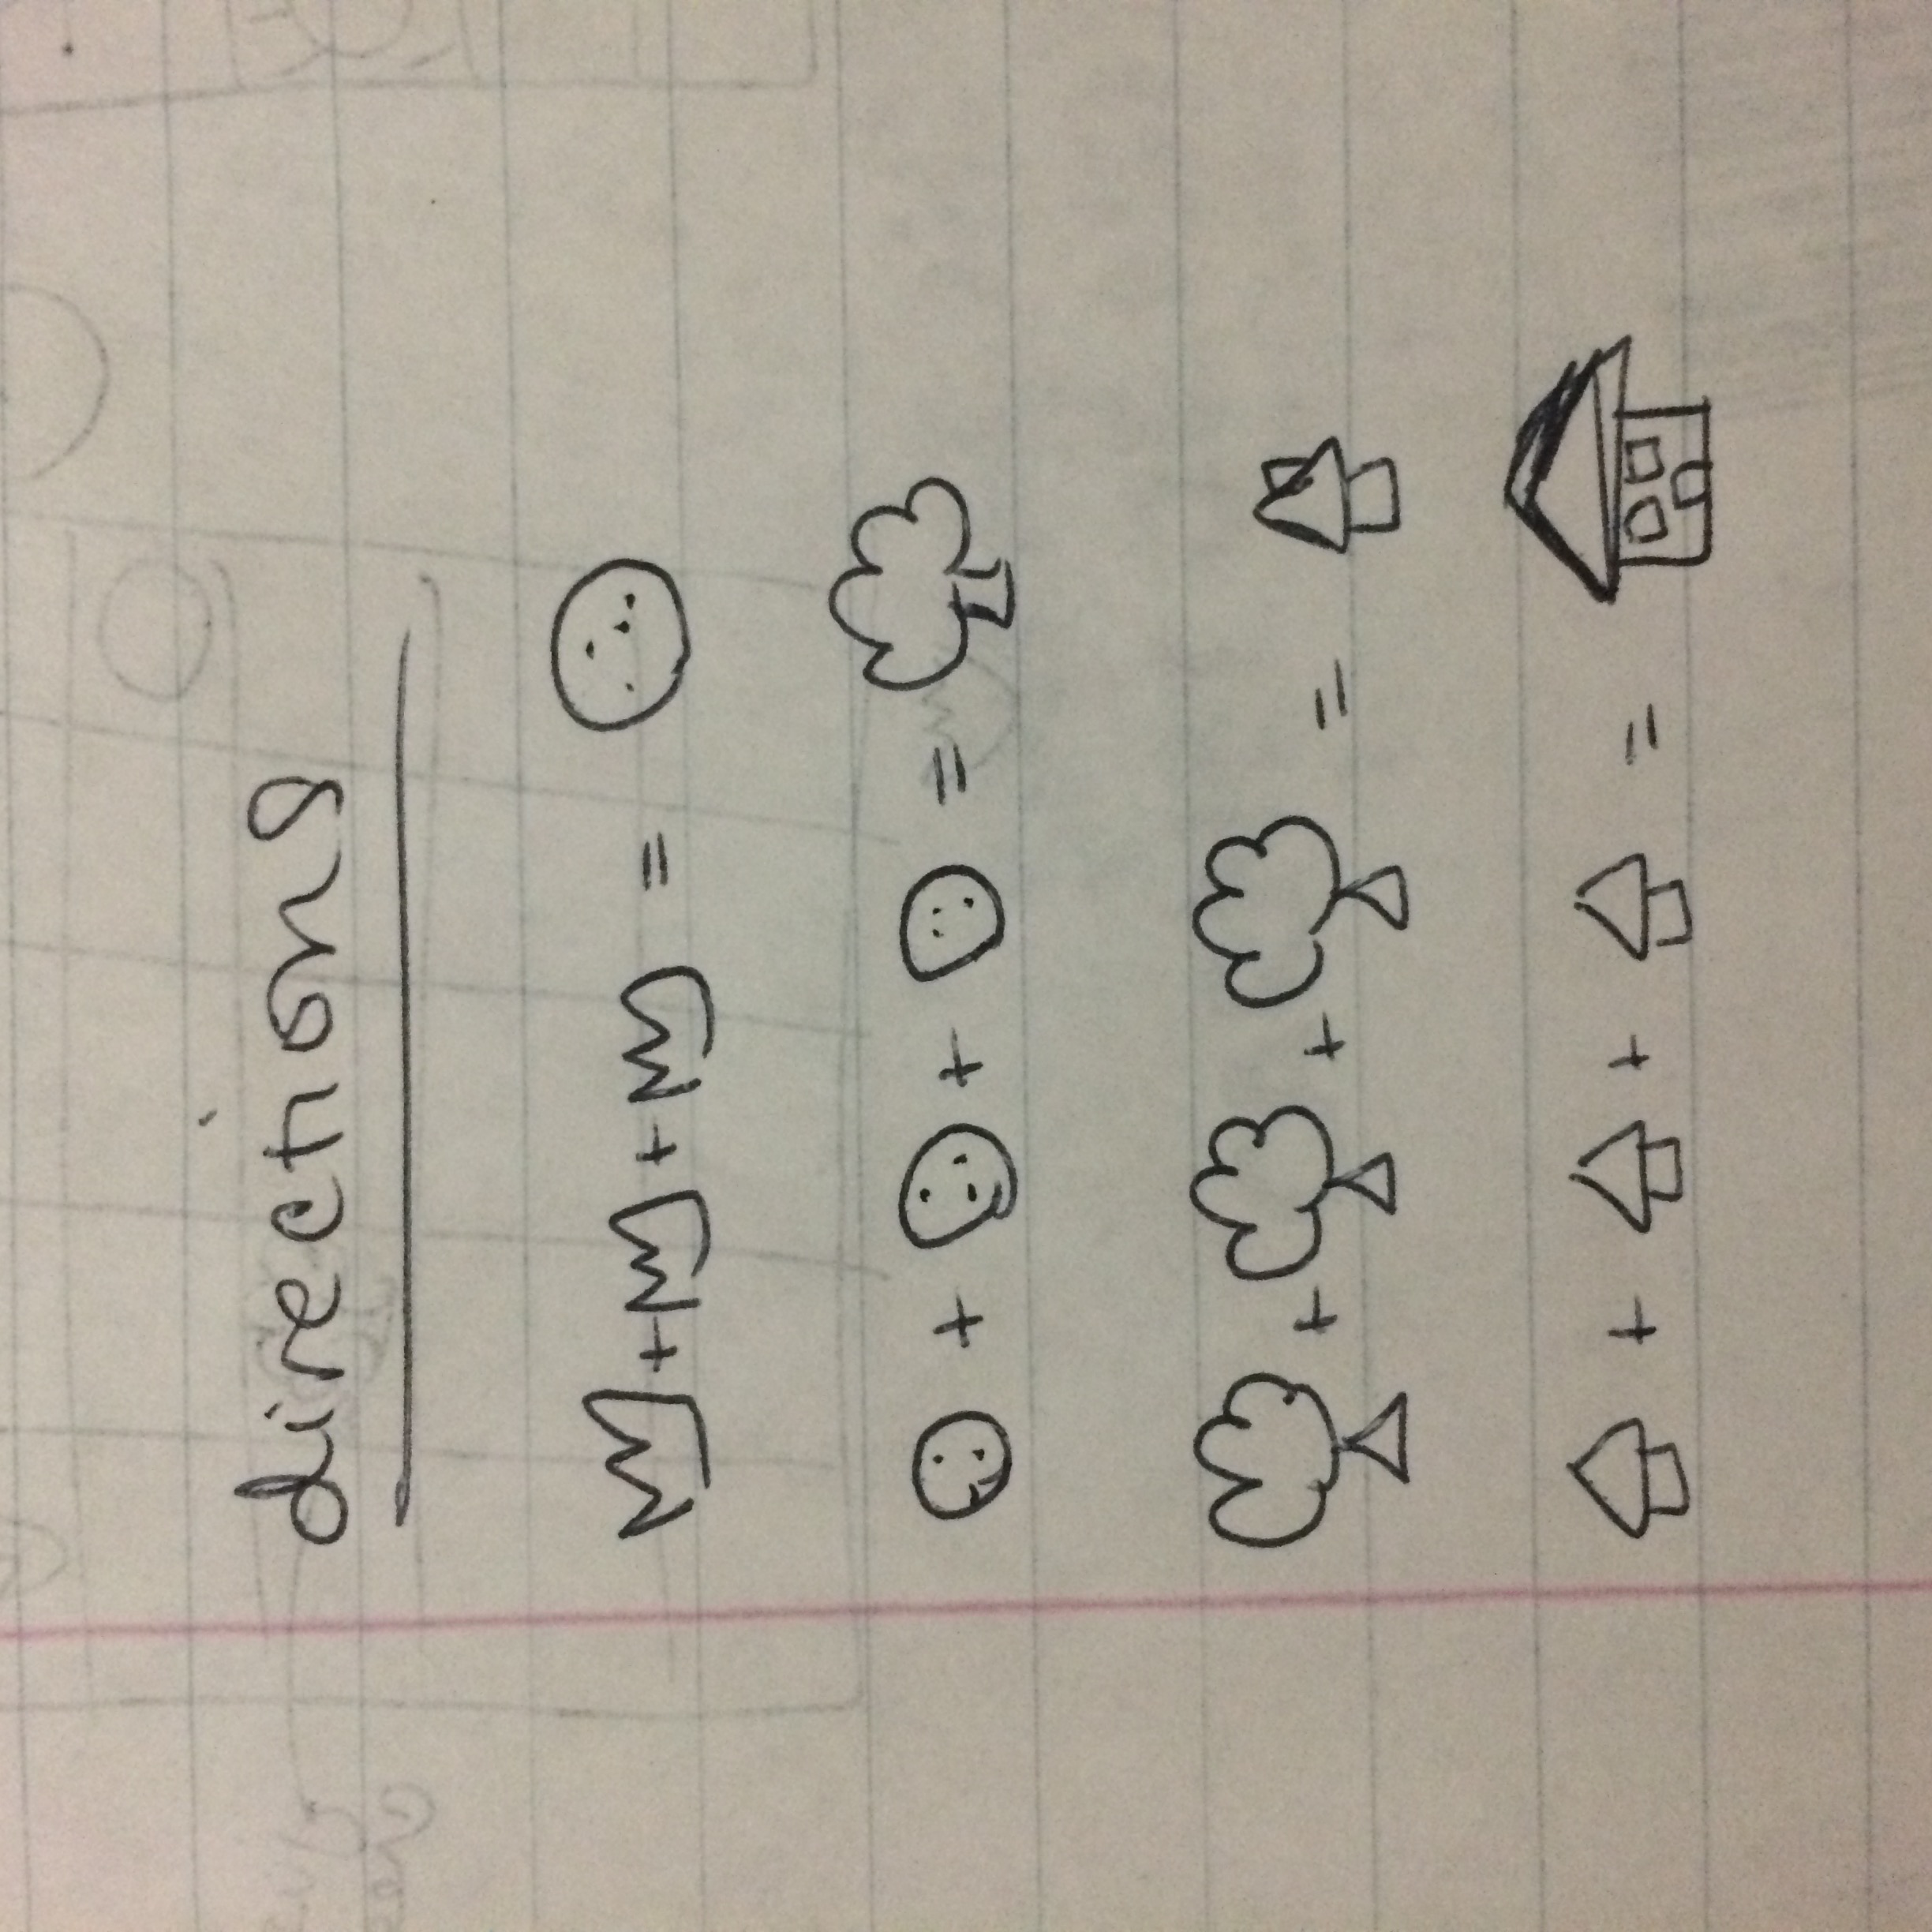 directions
+ + =
+ + =
+ + =
+ + =